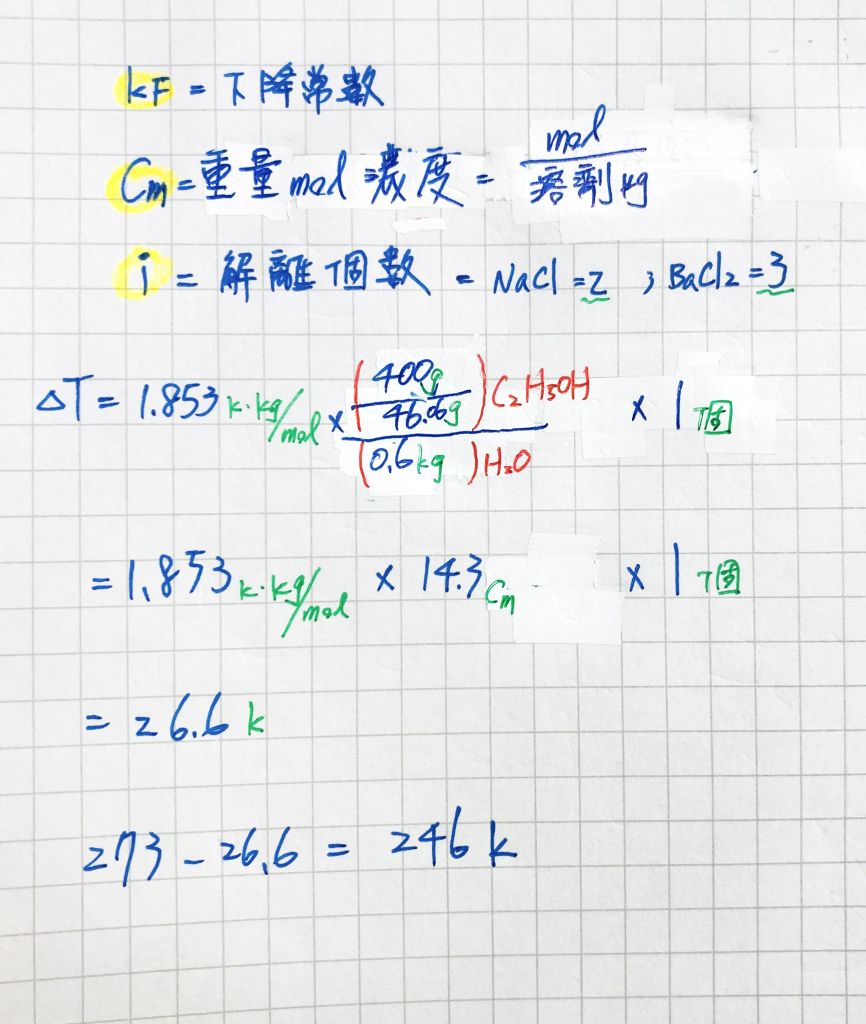 kF = 下降常數
Cm = 重量mol濃度 = mol / 溶劑kg
i = 解離個數 = NaCl = 2 ; BaCl2 = 3
ΔT = 1.853 k·kg/mol × (400g / 46.06g) C2H5OH / (0.6kg) H2O × 1個
= 1.853 k·kg/mol × 14.3 Cm × 1個
= 26.6 k
273 - 26.6 = 246 k